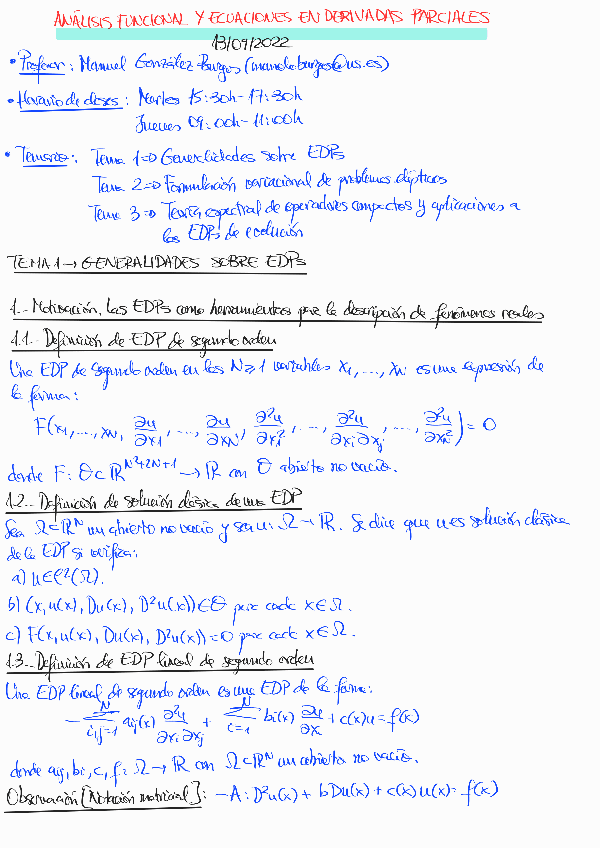 ANÁLISIS FUNCIONAL Y ECUACIONES EN DERIVADAS PARCIALES
13/09/2022
• Profesor: Manuel González-Burgos (manoloburgos@us.es)
• Horario de clases: Martes 15:30h-17:30h
Jueves 09:00h-11:00h
• Temario: Tema 1 => Generalidades sobre EDPs
Tema 2 => Formulación variacional de problemas elípticos
Tema 3 => Teoría espectral de operadores compactos y aplicaciones a
las EDPs de evolución
TEMA 1 → GENERALIDADES SOBRE EDPs
1.- Motivación. Las EDPs como herramientas para la descripción de fenómenos reales
1.1.- Definición de EDP de segundo orden
Una EDP de segundo orden en las N≥1 variables x₁, ..., x_N es una expresión de
la forma:
F(x₁, ..., x_N, ∂u/∂x₁, ..., ∂u/∂x_N, ∂²u/∂x₁², ..., ∂²u/∂x_i∂x_j, ..., ∂²u/∂x_N²) = 0
donde F: Θ⊂ℝ^(N²+2N+1) → ℝ con Θ abierto no vacío.
1.2.- Definición de solución clásica de una EDP
Sea Ω⊂ℝ^N un abierto no vacío y sea u: Ω → ℝ. Se dice que u es solución clásica
de la EDP si verifica:
a) u∈C²(Ω).
b) (x, u(x), Du(x), D²u(x))∈Θ para cada x∈Ω.
c) F(x, u(x), Du(x), D²u(x))=0 para cada x∈Ω.
1.3.- Definición de EDP lineal de segundo orden
Una EDP lineal de segundo orden es una EDP de la forma:
-∑_{i,j=1}^N a_ij(x) ∂²u/∂x_i∂x_j + ∑_{i=1}^N b_i(x) ∂u/∂x_i + c(x)u = f(x)
donde a_ij, b_i, c, f: Ω → ℝ con Ω⊂ℝ^N un abierto no vacío.
Observación [Notación matricial]: -A : D²u(x) + b Du(x) + c(x)u(x) = f(x)